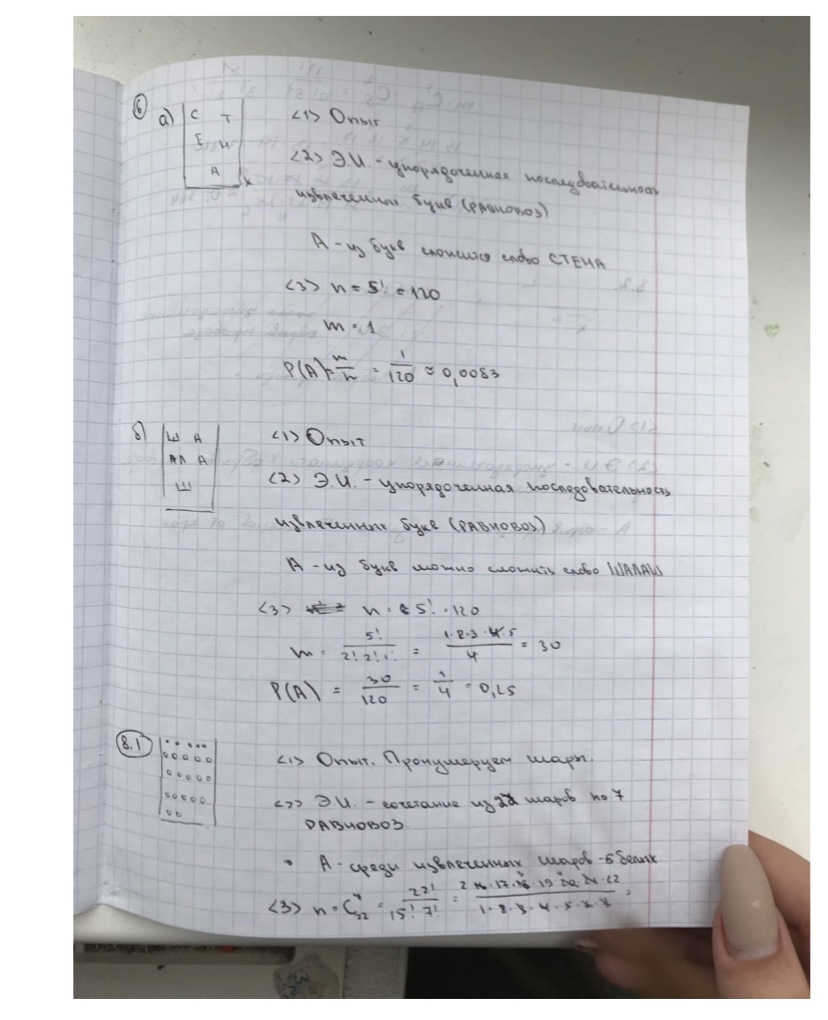 6
а) С Т <1> Опыт
Е Н <2> Э.И. - упорядоченная последовательность
А извлеченных букв (РАВНОВОЗ)
А - из букв сложится слово СТЕНА
<3> n = 5! = 120
m = 1
P(A) = m/n = 1/120 ≈ 0,0083
б) Ш А <1> Опыт
А Л А <2> Э.И. - упорядоченная последовательность
Ш извлеченных букв (РАВНОВОЗ)
А - из букв можно сложить слово ШАЛАШ
<3> n = 5! = 120
m = 5!/2!2!1! = 1·2·3·4·5/4 = 30
P(A) = 30/120 = 1/4 = 0,25
8.1 <1> Опыт. Пронумеруем шары.
<2> Э.И. - сочетание из 22 шаров по 7
РАВНОВОЗ.
• А - среди извлеченных шаров - 5 белых
<3> n = C = 22!/15! 7! = 16·17·18·19·20·21·22/1·2·3·4·5·6·7 =